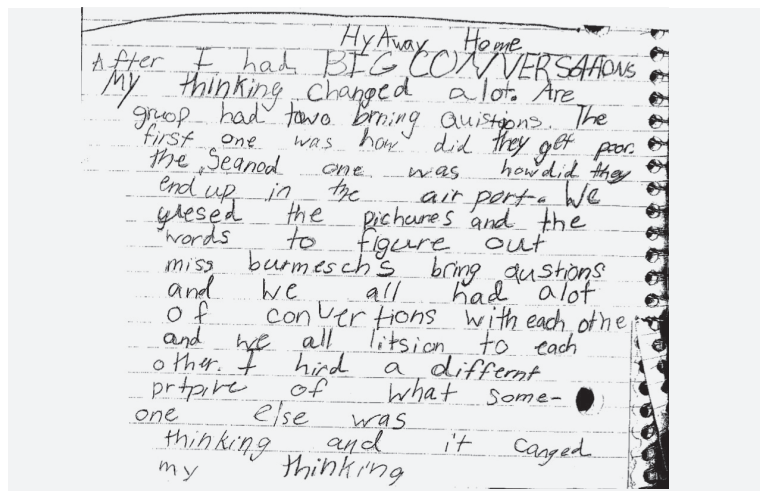 HyAway Home
After I had BIG CONVERSATIONS
My thinking changed alot. Are
gruop had towo brning quistions. The
first one was how did they get poor.
the Seanod one was how did they
end up in the air port. We
yuesed the pichures and the
words to figure out
miss burmeschs bring qustions
and we all had alot
of convertions with each othe
and we all litsion to each
other. I hird a differnt
prtpire of what some-
one else was
thinking and it canged
my thinking